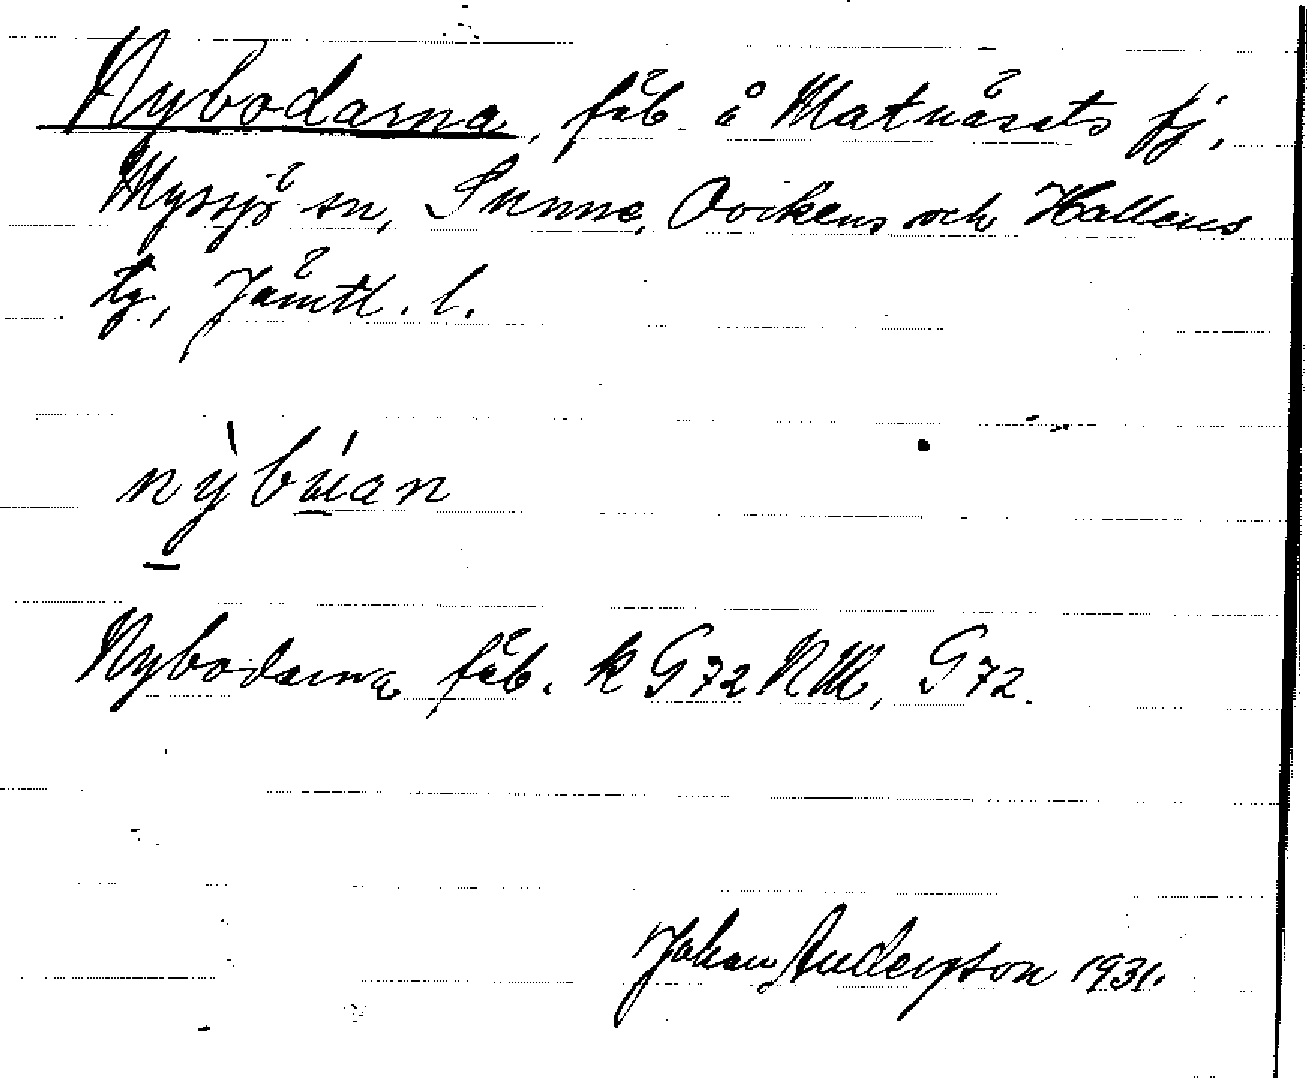 Nybodarna, fäb. å Matnäsets fj.
Myssjö sn, Sunne, Ovikens och Hallens
tg, Jämtl. l.
nỳbúan
Nybodarna fäb. k G72 RM, G72.
Johan Anderson 1931.